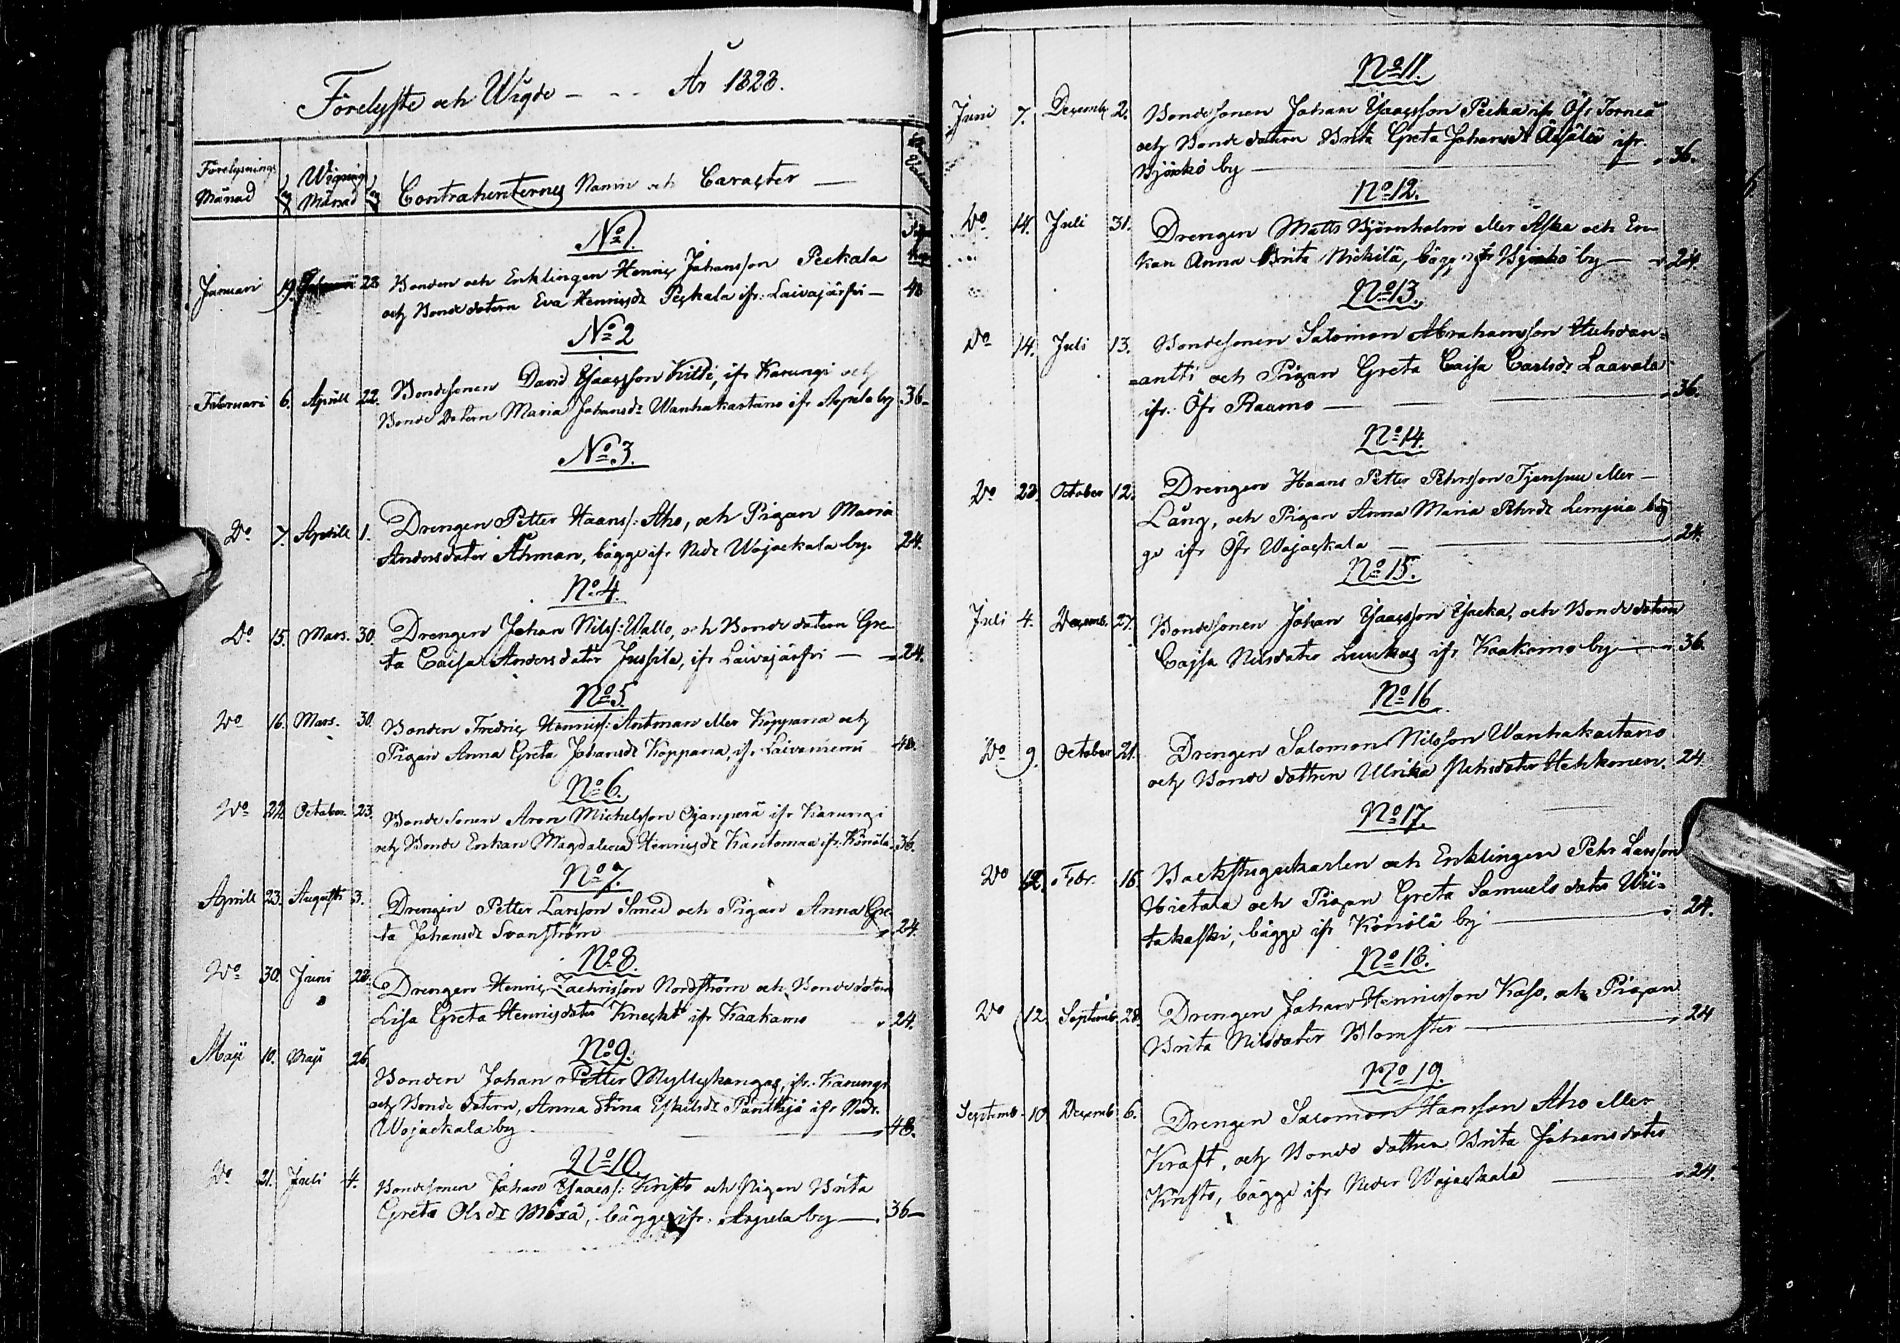 Förelyste och Wigde — - - År 1828.
Förelysnings Månad dag Wignings Månad dag Contrahenternes Namn och Caracter —
No 1.
Januari 19. 28 Bonden och Enklingen Henric Johansson Peckala
och Bonde dotern Eva Henricsdr Peckala ifr: Laivajärfvi — 48
No 2
Februari 6. Aprill 22. Bondesonen David Isaacsson Kilti, ifr Karungi och
Bonde Dotern Maria Johansdr Wanhakartano ifr Arpela by 36-
No 3.
Do 7. Aprill 1. Drengen Petter Haanss: Aho, och Pigan Maria
Andersdoter Åhman, bägge ifr Nedr Wojackala by. 24.
No 4.
Do 15. Mars. 30. Drengen Johan Nilss: Wallo, och Bonde dotern Gre-
ta Caisa Andersdoter Jussila, ifr Laivajärfvi — 24.
No 5.
Do 16. Mars. 30. Bonden Fredric Henricss: Antman eller Koppana och
Pigan Anna Greta Johansdr Koppana, ifr Laivaniemi 48.
No 6.
Do 22. October. 23. Bonde sonen Aron Michelsson Ojanperä ifr Karungi
och Bonde Enkan Magdalena Henricsdr Kantomaa ifr Könölä 36.
No 7.
Aprill 23. Augusti 3. Drengen Petter Larsson Smed och Pigan Anna Gre-
ta Johansdr Svanström 24.
No 8.
Do 30. Juni 22. Drengen Henric Zachrisson Nordström och Bonde dotern
Lisa Greta Henricsdoter Knecht ifr Kaakamo 24.
No 9.
Maji 10. Maji 26. Bonden Johan Petter Myllykangas, ifr. Karungi
och Bonde dotern, Anna Stina Eskilsdr Panttaja ifr Nedr.
Wojackala by 48.
No 10.
Do 21. Juli 4. Bondesonen Johan Isaacss: Kristo och Pigan Brita
Greta Olsdr Moxä, bägge ifr: Arpela by — 36—
No 11.
Juni 7. Decemb. 2. Bondesonen Johan Isaacsson Pecka ifr Öfr Torneå
och Bonde dotern Brita Greta Johansdr ifr
Björkö by — 36.
No 12.
Do 14. Juli 31. Drengen Matts Björnholm eller Aska och En-
kan Anna Brita Nickilä, bägge ifr Björkö by — 24.
No 13.
Do 14. Juli 13. Bondesonen Salomon Abrahamsson Huhtan-
-antti och Pigan Greta Caisa Carlsdr Laavala
ifr. Öfr Raumo — 36.
No 14.
Do 23. October 12. Drengen Haans Petter Pehrsson eller —
Lång, och Pigan Anna Maria Pehrdr bäg
ge ifr Öfr Wojackala — 24.
No 15.
Juli 4. Decemb. 27. Bondesonen Johan Isaacsson Isacka, och Bonde dotern
Cajsa Nilsdoter Luukas ifr Kaakamo by — 36
No 16
Do 9. October 21. Drengen Salomon Nilsson Wanhakartano
och Bonde dottren Ulrika Pehrsdoter Hehkonen. 24
No 17.
Do 12. Febr. 15. Backstugukarlen och Enklingen Pehr Larsson
Hietala och Pigan Greta Samuels doter Wii-
takaski, bägge ifr Könölä by — 24.
No 18.
Do 12. Septemb. 28. Drengen Johan Henricsson Kaso, och Pigan
Brita Nilsdoter Blomster — 24
No 19.
Septemb. 10 Decemb. 6. Drengen Salomon Hansson Aho eller
Kraft, och Bonde dottren Brita Johansdoter
Kristo, bägge ifr Neder Wojackala — 24.